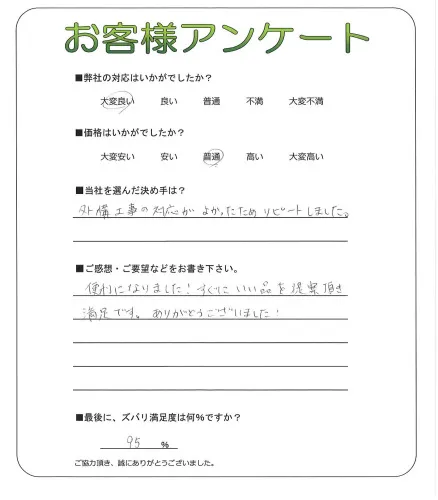 お客様アンケート
■弊社の対応はいかがでしたか？
大変良い 良い 普通 不満 大変不満
■価格はいかがでしたか？
大変安い 安い 普通 高い 大変高い
■当社を選んだ決め手は？
外構工事の対応がよかったためリピートしました。
■ご感想・ご要望などをお書き下さい。
便利になりました！すぐにいい品を提案頂き
満足です。ありがとうございました！
■最後に、ズバリ満足度は何%ですか？
95 %
ご協力頂き、誠にありがとうございました。